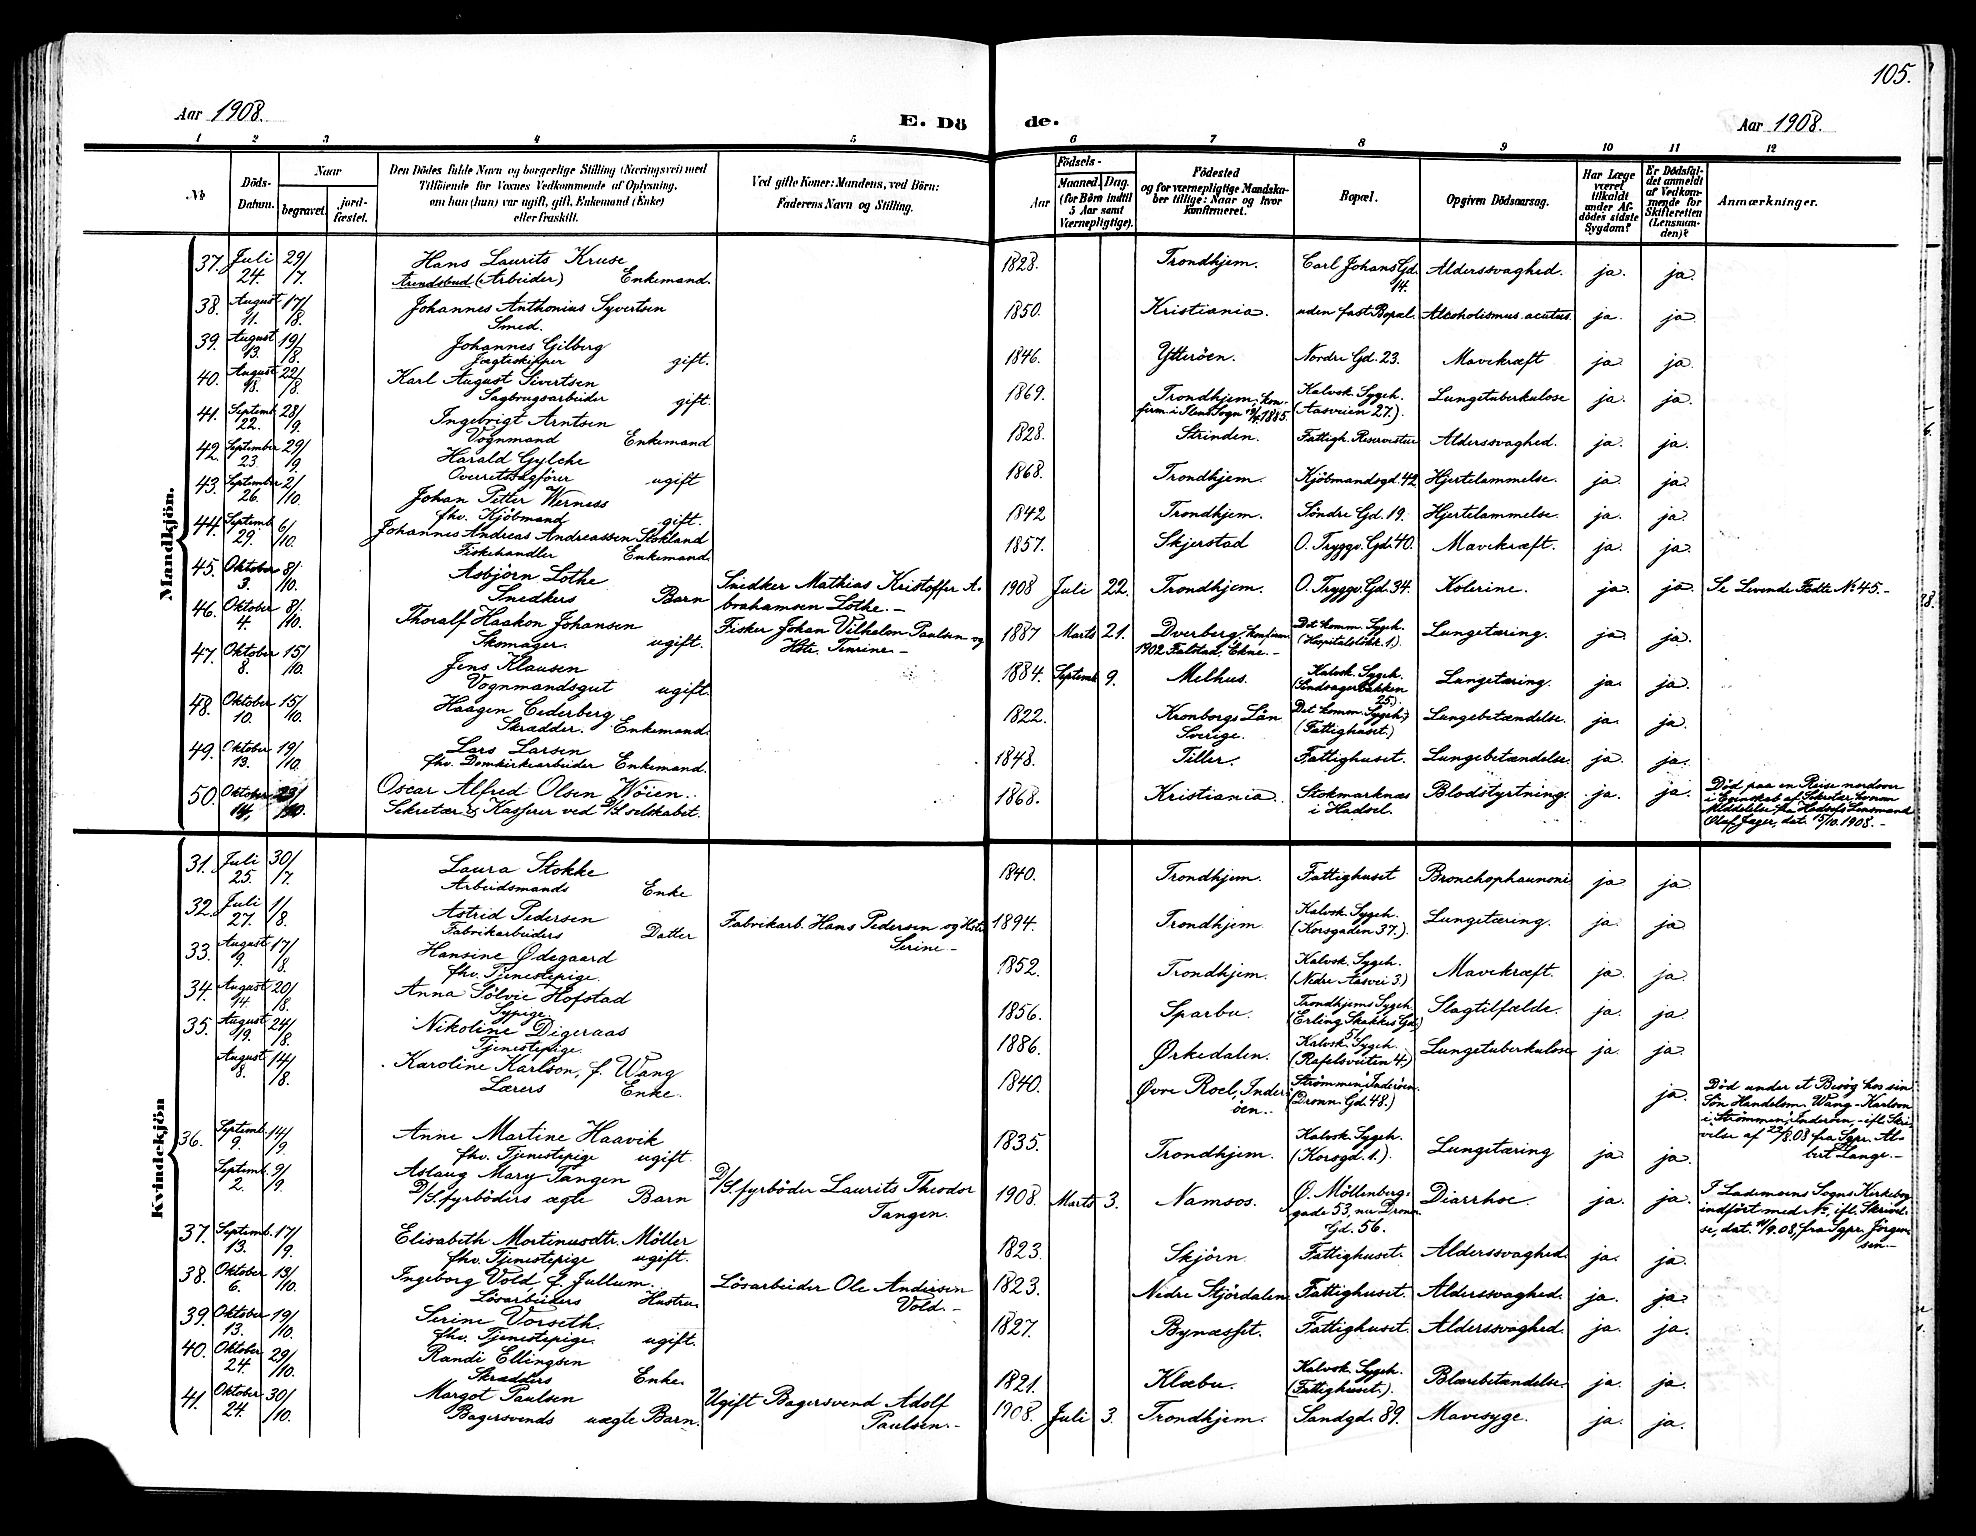 105.
Aar 1908.
E. Dö
de.
Aar 1908.
1 2 3 4 5 6 7 8 9 10 11 12
№
Döds-
Datum.
Naar
begravet.
jord-
fæstet.
Den Dödes fulde Navn og borgerlige Stilling (Næringsvei) med
Tilföiende for Voxnes Vedkommende af Oplysning,
om han (hun) var ugift, gift, Enkemand (Enke)
eller fraskilt.
Ved gifte Koner: Mandens, ved Börn:
Faderens Navn og Stilling.
Födsels-
Aar
Maaned.
Dag.
(for Börn indtil
5 Aar samt
Værnepligtige).
Födested
og for værnepligtige Mandska-
ber tillige: Naar og hvor
konfirmeret.
Bopæl.
Opgiven Dödsaarsag.
Har Læge
været
tilkaldt
under Af-
dödes sidste
Sygdom?
Er Dödsfal-
det anmeldt
af Vedkom-
mende for
Skifteretten
(Lensman-
den)?
Anmærkninger.
Mandkjön.
37. Juli 24. 29/7. Hans Laurits Kruse
Arendsbud (Arbeider) Enkemand. 1828. Trondhjem. Carl Johans Gd. 14. Alderssvaghed. ja. ja.
38. August 11. 17/8. Johannes Anthonius Syvertsen
Smed. 1850. Kristiania. uden fast Bopæl. Alcoholismus acutus. ja. ja.
39. August 13. 19/8. Johannes Gilberg
Jægteskipper gift. 1846. Ytterøen. Nordre Gd. 23. Mavekræft ja. ja.
40. August 18. 22/8. Karl August Sivertsen
Sagbrugsarbeider gift. 1869. Trondhjem, kon-
firm. i Ilens Sogn 1885. Kalvsk. Sygeh.
(Aasveien 27.). Lungetuberkulose ja. ja.
41. Septemb. 22. 28/9. Ingebrigt Arntsen
Vognmand Enkemand 1828. Strinden. Fattigh. Alderssvaghed. ja. ja.
42. September 23. 29/9. Harald Gylche
Overretssagfører ugift 1868. Trondhjem. Kjöbmandsgd. 42. Hjertelammelse. ja. ja.
43. September 26. 2/10. Johan Petter Werness
fhv. Kjöbmand gift. 1842 Trondhjem. Söndre Gd. 19. Hjertelammelse. ja. ja.
44. Septemb. 29. 6/10. Johannes Andreas Andreassen Stokland
Fiskehandler Enkemand. 1857. Skjerstad O. Tryggv. Gd. 40. Mavekræft. ja. ja.
45. Oktober 3. 8/10. Asbjørn Lothe
Snedkers Barn Snedker Mathias Kristoffer A-
brahamsen Lothe.- 1908 Juli 22. Trondhjem. O. Tryggv. Gd. 34. Kolerine. ja. ja. Se Levende Födte No 45.-
46. Oktober 4. 8/10. Thoralf Haakon Johansen
Skomager. ugift. Fisker Johan Vilhelm Paulsen og
Hstr. 1887 Marts 21. Dverberg, konfirm.
1902 Falstad, Ekne.- Det komm. Sygeh.
(Hospitalsløkk. 1.) Lungetæring. ja. ja.
47. Oktober 8. 15/10. Jens Klausen
Vognmandsgut ugift. 1884. Septemb. 9. Melhus. Kalvsk. Sygeh.
(Sindsagerbakken 25.) Lungetæring. ja. ja.
48. Oktober 10. 15/10. Haagen Cederberg
Skrædder. Enkemand. 1822. Kronborgs Län
Sverige. Det komm. Sygeh.
(Fattighuset.) Lungebetændelse. ja. ja.
49. Oktober 13. 19/10. Lars Larsen
fhv. Domkirkearbeider Enkemand. 1848. Tiller. Fattighuset. Lungebetændelse. ja. ja.
50. Oktober 14. 23/10. Oscar Alfred Olsen Wöien.
Sekretær & Kasserer ved D/S selskabet. 1868. Kristiania. Stokmarknæs
i Hadsel. Blodstyrtning. ja. ja. Död paa en Reise nordover
i Egenskab af Sekretær
Meddelelse fra Hadsels Lensmand
Olaf Jæger, dat. 15/10. 1908.-
Kvindekjön
31. Juli 25. 30/7. Laura Stokke
Arbeidsmands Enke 1840. Trondhjem. Fattighuset Bronchophaunoni ja ja.
32. Juli 27. 1/8. Astrid Pedersen
Fabrikarbeiders Datter Fabrikarb. Hans Pedersen og Hstr.
Serine- 1894. Trondhjem Kalvsk. Sygeh.
(Korsgaden 37.). Lungetæring. ja. ja.
33. August 9. 17/8. Hansine Ødegaard
fhv. Tjenestepige. 1852. Trondhjem. Kalvsk. Sygeh.
(Nedre Aasvei 3.) Mavekræft. ja. ja.
34. August 14 20/8. Anna Sölvie Hofstad
Sypige. 1856. Sparbu. Trondhjems Sygeh.
(Erling Skakkes Gd. 51.) Slagtilfælde. ja. ja.
35. August 19. 24/8. Nikoline Digeraas
Tjenestepige. 1886. Ørkedalen. Kalvsk. Sygeh.
(Rafelsveiten 4.) Lungetuberkulose ja. ja.
August 8. 14/8. Karoline Karlson, f. Wang
Lærers Enke. 1840. Øvre Roel, Inder-
öen. Strömmen, Inderöen.
(Dronn. Gd. 48.) ja. Död under et Besög hos sin
Sön Handelsm. Wang-Karlson
i Strömmen, Inderöen,- ifl. Skri-
velse af 22/8.08 fra Sgpr. Al-
bert Lange.-
36. Septemb. 9. 14/9. Anne Martine Haavik
fhv. Tjenestepige ugift. 1835. Trondhjem. Kalvsk. Sygeh.
(Korsgd. 1.). Lungetæring ja ja.
Septemb. 2. 9/9. Aslaug Mary Tangen
D/S. fyrböders ægte Barn D/S. fyrböder Laurits Theodor
Tangen. 1908 Marts 3. Namsos. Ø. Möllenberg-
gade 53, nu Dronn.
Gd. 56. Diarrhoe. ja. ja. I Lademoens Sogns Kirkebog
indfört med No, ifl. Skrivel-
se, dat. /9.08, fra Sgpr. Jörgen-
sen.-
37. Septemb. 13. 17/9. Elisabeth Mortinusdtr. Möller
fhv. Tjenestepige ugift. 1823. Skjörn Fattighuset. Alderssvaghed. ja. ja.
38. Oktober 6. 13/10. Ingeborg Vold, f. Jullum.
Lösarbeiders Hustru Lösarbeider Ole Andersen
Vold.- 1823. Nedre Stjördalen Fattighuset. Alderssvaghed. ja. ja.
39. Oktober 13. 19/10. Serine Vorseth.
fhv. Tjenestepige. ugift. 1827. Bynæsset. Fattighuset. Alderssvaghed. ja. ja.
40. Oktober 24 29/10. Randi Ellingsen
Skrædders Enke. 1821. Klæbu. Kalvsk. Sygeh.
(Fattighuset.). Blærebetændelse. ja. ja.
41. Oktober 24. 30/10. Margot Paulsen
Bagersvends uægte Barn. Ugift Bagersvend Adolf
Paulsen.- 1908. Juli 3. Trondhjem. Sandgd. 89. Mavesyge. ja. ja.